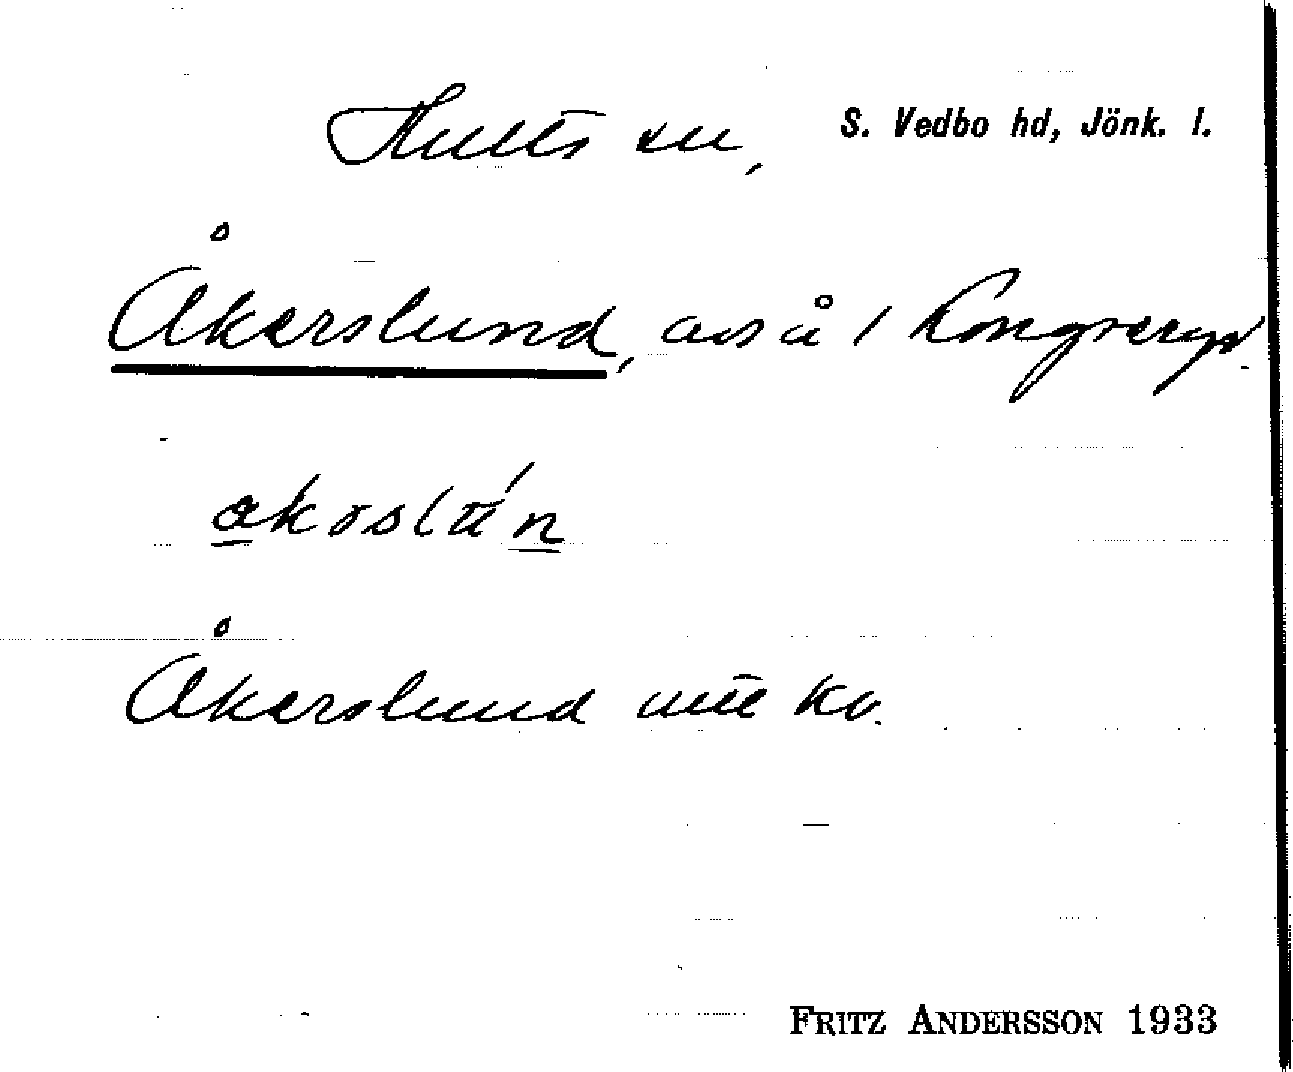 Hults sn, S. Vedbo hd, Jönk. l.
Åkerslund, avs å 1 Kongseryd
åkɷslún
Åkerslund ute kv.
FRITZ ANDERSSON 1933